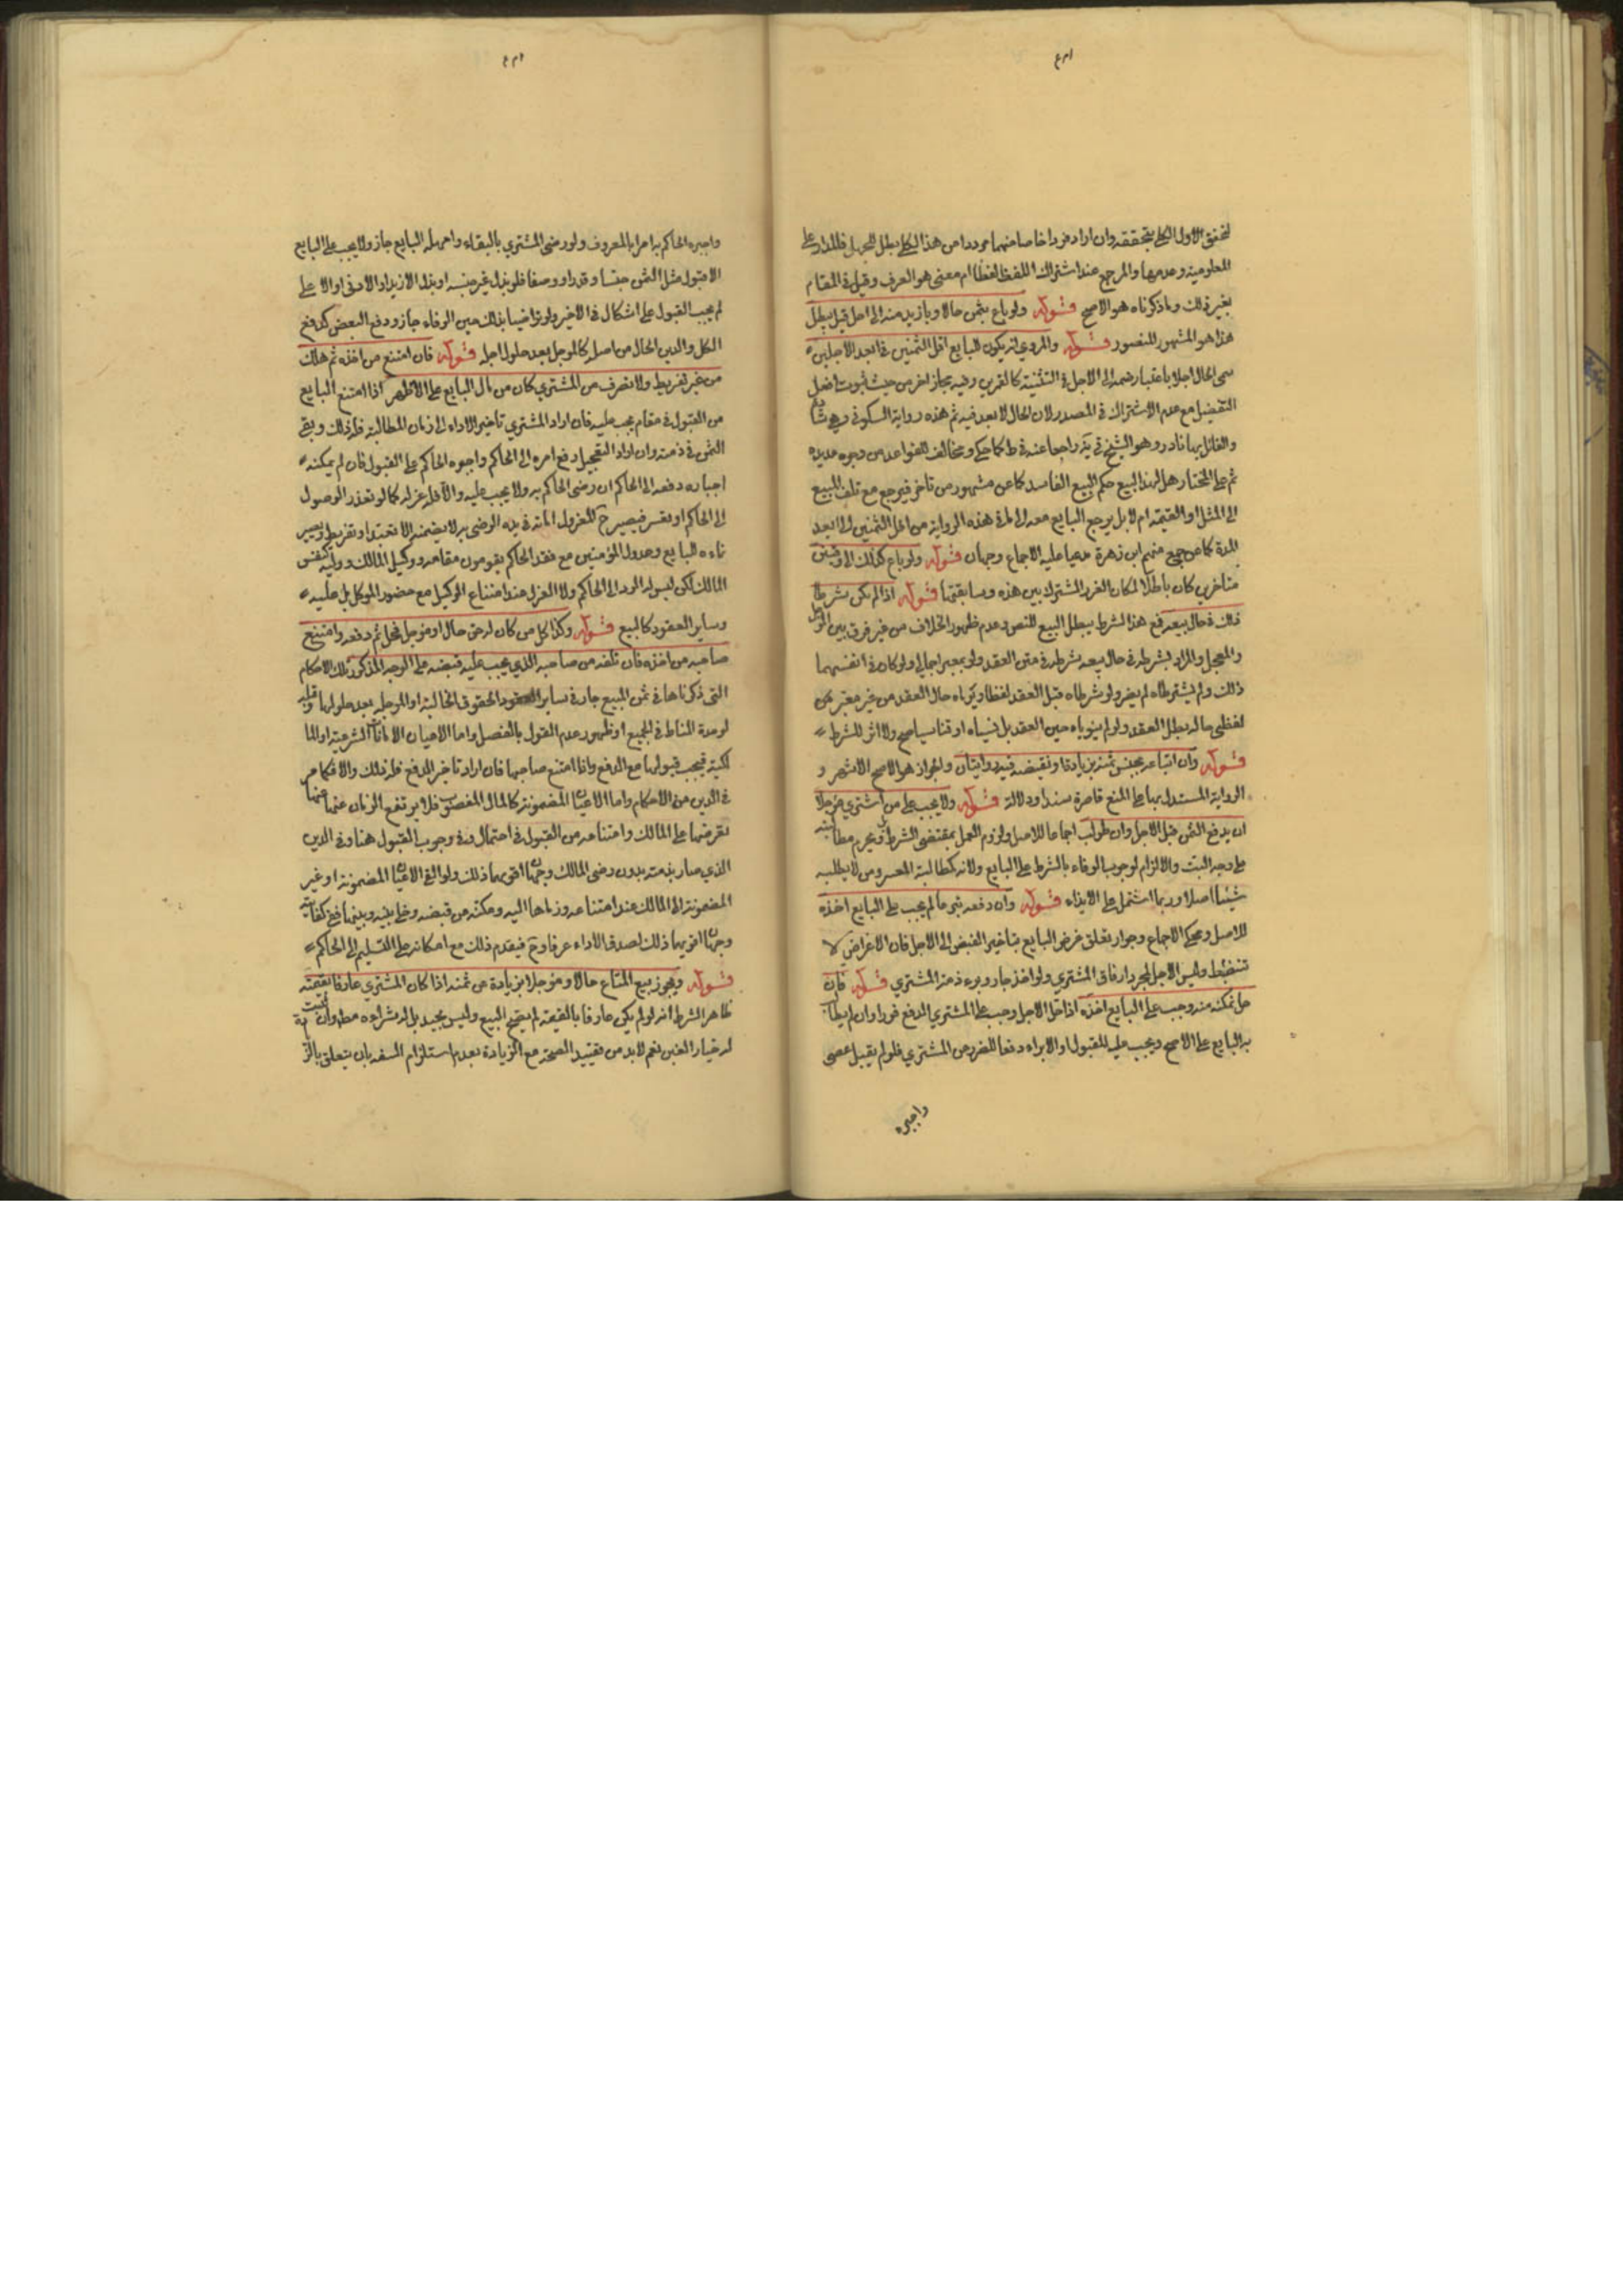 لتحقق الاول الكلي بتحققه وان اراد فردا خاصا منهما مرددا من هذا الكلي بطل للجهل فالمدار على
المعلومية وعدمها والمرجع عند اشتراك اللفظ لفظا ام معنى هو العرف وقيل في المقام
بغير ذلك وما ذكرناه هو الاصح قوله ولو باع بثمن حالا وبازيد منه الى اجل قيل يبطل
هذا هو المشهور المنصور قوله والمروي انه يكون للبايع اقل الثمنين في ابعد الاجلين
سمى الحال اجلا باعتبار ضمه الى الاجل في التثنية كالقمرين وفيه مجاز اخر من حيث ثبوت افعل
التفضيل مع عدم الاشتراك في المصدر لان الحال لا بعد فيه ثم هذه رواية السكوني وهي
والقائل بها نادر وهو الشيخ في ية راجعا عنه في ط كما حكي ومخالف للقواعد من وجوه عديدة
ثم على المختار هل لهذا البيع حكم البيع الفاسد كما عن مشهور من تاخر فيرجع مع تلف المبيع
الى المثل او القيمة ام لا بل يرجع البايع معه الى ما في هذه الرواية من اقل الثمنين الى ابعد
المدة كما عن جمع منهم ابن زهرة مدعيا عليه الاجماع وجهان قوله ولو باع كذلك الى وقتين
متاخرين كان باطلا لمكان الغرر المشترك بين هذه وسابقتها قوله اذا لم يكن بشرط
ذلك في حال بيعه فمع هذا الشرط يبطل البيع للنص وعدم ظهور الخلاف من غير فرق بين
والمعجل والمراد بشرطه في حال بيعه بشرطه في متن العقد ولو بمعبر اجمالي ولو كان في انفسهما
ذلك ولم يشترطاه لم يضر ولو شرطاه قبل العقد لفظا ونوياه حال العقد من غير معبر عن
لفظي حاله بطل العقد ولو لم ينوياه حين العقد بل نسياه او تناسياه صح ولا اثر للشرط
قوله وان ابتاعه بجنس ثمنه بزيادة او نقيصة فيه روايتان والجواز هو الاصح الاشهر و
الرواية المستدل بها على المنع قاصرة سندا ودلالة قوله ولا يجب على من اشترى مؤجلا
ان يدفع الثمن قبل الاجل وان طولب اجماعا للاصل ولزوم العمل بمقتضى الشرط ويحرم
على وجه البت والالزام لوجوب الوفاء بالشرط على البايع ولانه كمطالبة المعسر ومن لا يطلبه
شيئا اصلا وربما اشتمل على الايذاء قوله وان دفعه تبرعا لم يجب على البايع اخذه
للاصل ومحكي الاجماع وجواز تعلق غرض البايع بتاخير القبض الى الاجل فان الاغراض لا
تنضبط وليس الاجل لمجرد ارفاق المشتري ولو اخذ جاز وبرء ذمة المشتري قوله فان
حل مكنه منه وجب على البايع اخذه اذا حل الاجل وجب على المشتري الدفع فورا وان لم
به البايع على الاصح ويجب عليه القبول او الابراء دفعا للضرر عن المشتري فلو لم يقبل عصى
واجبره
واجبره الحاكم به امرا بالمعروف ولو رضى المشتري بالبقاء وامهله البايع جاز ولا يجب على البايع
الا قبول مثل الثمن جنسا وقدرا ووصفا فلو بذل غير جنسه او بذل الازيد او الادنى او الاعلى
لم يجب القبول على اشكال في الاخير ولو تراضيا بذلك حين الوفاء جاز ودفع البعض كدفع
الكل والدين الحال من اصله كالمؤجل بعد حلول اجله قوله فان امتنع من اخذه ثم هلك
من غير تفريط ولا تصرف من المشتري كان من مال البايع على الاظهر اذا امتنع البايع
من القبول في مقام يجب عليه فان اراد المشتري تاخير الاداء الى زمان المطالبة فله ذلك وبقي
الثمن في ذمته وان اراد التعجيل دفع امره الى الحاكم واجبره الحاكم على القبول فان لم يمكنه
اجباره دفعه الى الحاكم ان رضى الحاكم به ولا يجب عليه والا فله عزله كما لو تعذر الوصول
الى الحاكم او تعسر فيصير ح المعزول امانة في يده الوضي به لا يضمنه الا بتعد او تفريط ويصير
نماءه للبايع وعدول المؤمنين مع فقد الحاكم يقومون مقامه ووكيل المالك ووليه كنفس
المالك لكن ليس له الرد الى الحاكم ولا العزل عند امتناع الوكيل مع حضور الموكل بل عليه
وساير العقود كالبيع قوله وكذا كل من كان له حق حال او مؤجل فحل ثم دفعه وامتنع
صاحبه من اخذه فان تلفه من صاحبه الذي يجب عليه قبضه على الوجه المذكور تلك الاحكام
التي ذكرناها في ثمن المبيع جار في ساير العقود والحقوق الحالية او المؤجلة بعد حلولها
لوحدة المناط في الجميع او ظهور عدم القول بالفصل واما الاعيان الامانات الشرعية او الما
لكية فيجب قبولها مع الدفع واذا امتنع صاحبها فان اراد تاخير الدفع فله ذلك والا فكما مر
في الدين من الاحكام واما الاعيان المضمونة كالمال المغصوب فلا يرتفع الزمان عنها
بعرضها على المالك وامتناعه من القبول في احتمال وفي وجوب القبول هنا وفي الدين
الذي صار بذمته بدون رضى المالك وجهان اقويهما ذلك ولو القى الاعيان المضمونة او غير
المضمونة الى المالك عند امتناعه ورماها اليه ومكنه من قبضه وخلى بينه وبينها ففي
وجهان اقويهما ذلك لصدق الاداء عرفا وح فيقدم ذلك مع امكانه على التسليم الى الحاكم
قوله ويجوز بيع المتاع حالا ومؤجلا بزيادة عن ثمنه اذا كان المشتري عارفا بقيمته
ظاهر الشرط انه لو لم يكن عارفا بالقيمة لم يصح البيع وليس بجيد بل له شراءه مط وان
له خيار الغبن نعم لا بد من تقييد الصحة مع الزيادة بعدم استلزام السفه بان يتعلق